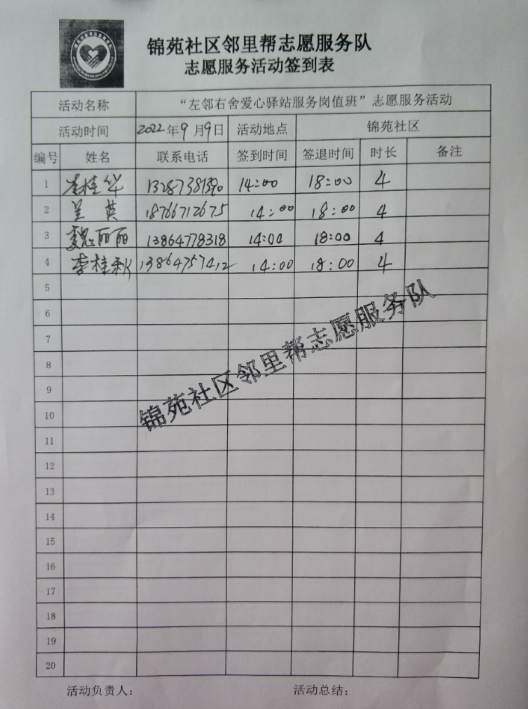 锦苑社区邻里帮志愿服务队
志愿服务活动签到表
活动名称 “左邻右舍爱心驿站服务岗值班”志愿服务活动
活动时间 2022年9月9日 活动地点 锦苑社区
编号 姓名 联系电话 签到时间 签退时间 时长 备注
1 李桂华 14:00 18:00 4
2 兰英 18766712675 14:00 18:00 4
3 魏丽丽 13864778318 14:00 18:00 4
4 李桂秋 13864757412 14:00 18:00 4
5
6
7
8
9
10
11
12
13
14
15
16
17
18
19
20
锦苑社区邻里帮志愿服务队
活动负责人: 活动总结: